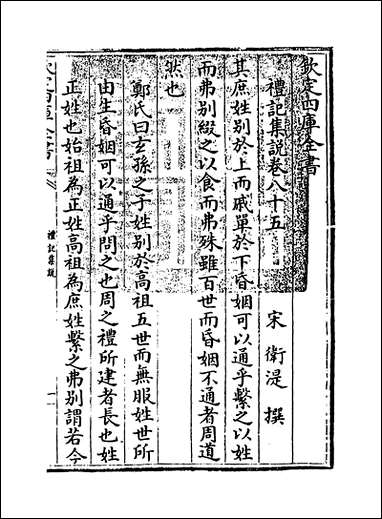 欽定四庫全書
禮記集說卷八十五
宋 衛湜 撰
其庶姓別於上而戚單於下昏姻可以通乎繫之以姓
而弗別綴之以食而弗殊雖百世而昏姻不通者周道
然也
鄭氏曰玄孫之子姓別於高祖五世而無服姓世所
由生昏姻可以通乎問之也周之禮所建者長也姓
正姓也始祖為正姓高祖為庶姓繫之弗別謂若今
禮記集說